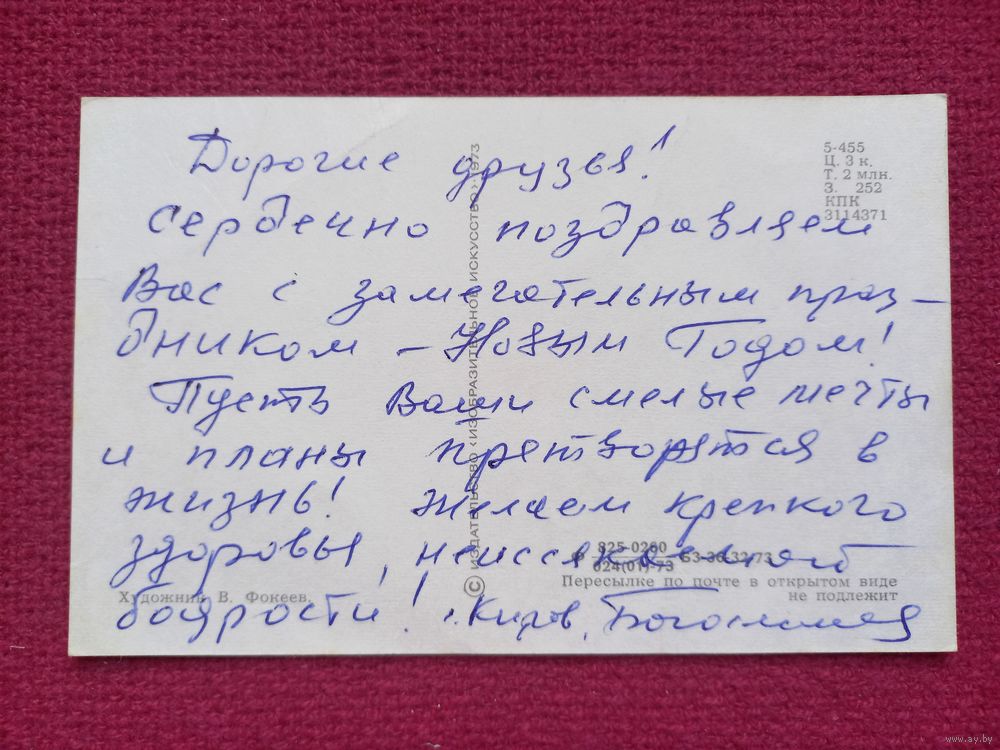 Дорогие друзья!
Сердечно поздравляем
Вас с замечательным праз-
дником – Новым Годом!
Пусть Ваши смелые мечты
и планы претворятся в
жизнь! Желаем крепкого
здоровья, неиссякаемой
бодрости! г. Киров,
5-455
Ц. 3 к.
Т. 2 млн.
З. 252
КПК
3114371
© ИЗДАТЕЛЬСТВО «ИЗОБРАЗИТЕЛЬНОЕ ИСКУССТВО» 1973
825-0260
024(01)-73 63-30-32-73
Пересылке по почте в открытом виде
не подлежит
Художник В. Фокеев.
www.ay.by